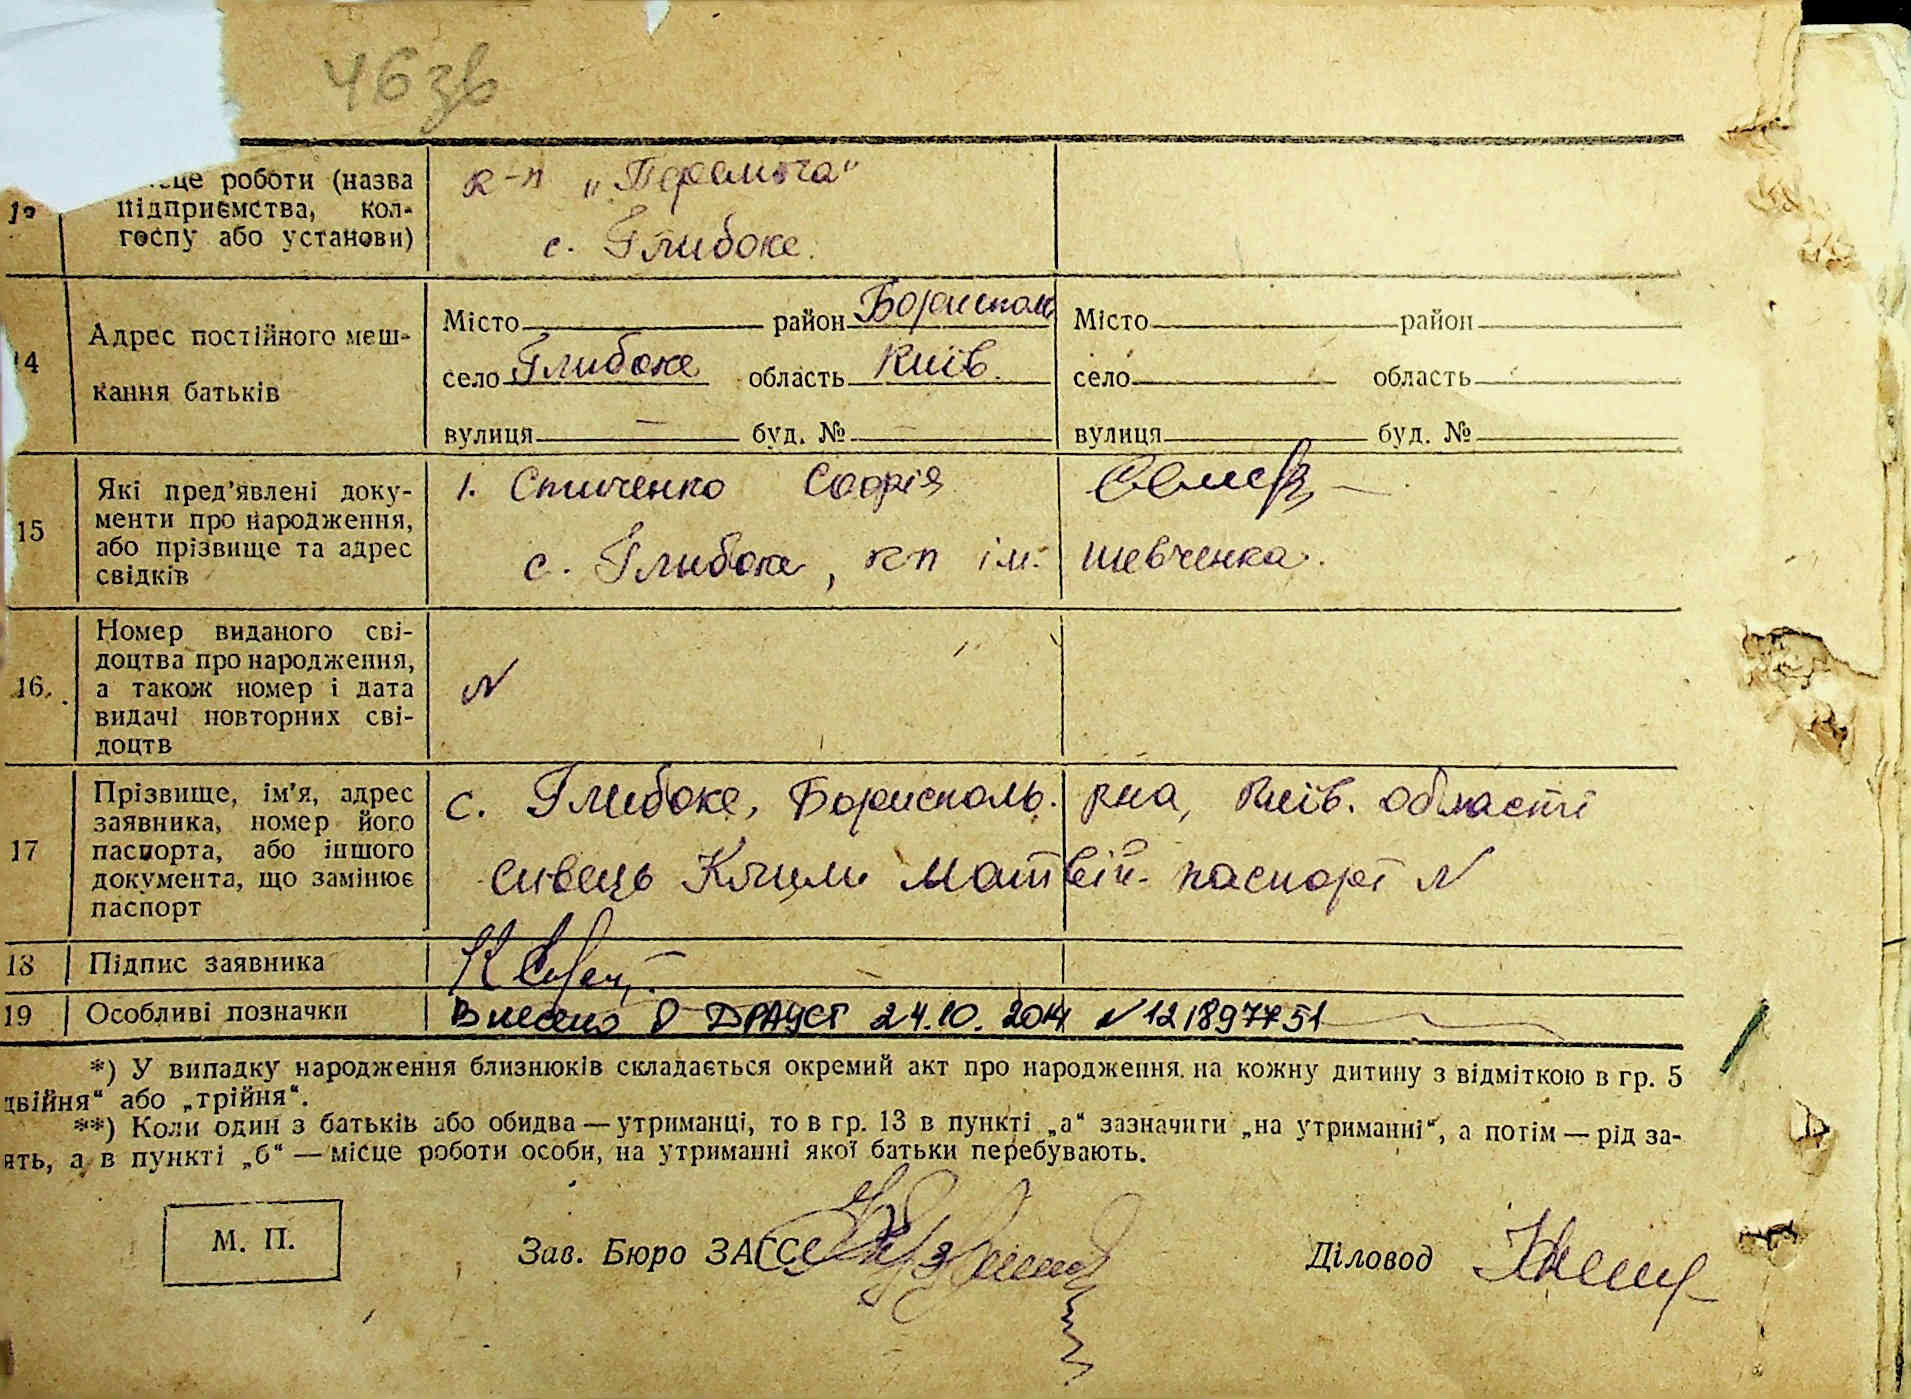 46 зв
це роботи (назва
підприємства, кол-
госпу або установи)
к-п „Перемога“
с. Глибоке.
14 Адрес постійного меш-
кання батьків
Місто район Бориспол
село Глибоке область Київ.
вулиця — буд. №
Місто район
село область
вулиця буд. №
15 Які пред'явлені доку-
менти про народження,
або прізвище та адрес
свідків
1. Спиченко Софія
с. Глибоке, к-п ім. Шевченка.
16. Номер виданого сві-
доцтва про народження,
а також номер і дата
видачі повторних сві-
доцтв
N
17 Прізвище, ім'я, адрес
заявника, номер його
паспорта, або іншого
документа, що замінює
паспорт
с. Глибоке, Бориполь. р-на, Київ. області
Сивець Клим Матвій. паспорт N
18 Підпис заявника
19 Особливі позначки
Внесено в ДРАЦСГ 24.10.2014 N 121897751
*) У випадку народження близнюків складається окремий акт про народження на кожну дитину з відміткою в гр. 5
двійня“ або „трійня“.
**) Коли один з батьків або обидва — утриманці, то в гр. 13 в пункті „а“ зазначити „на утриманні“, а потім — рід за-
ять, а в пункті „б“ — місце роботи особи, на утриманні якої батьки перебувають.
М. П.
Зав. Бюро ЗАГС
Діловод